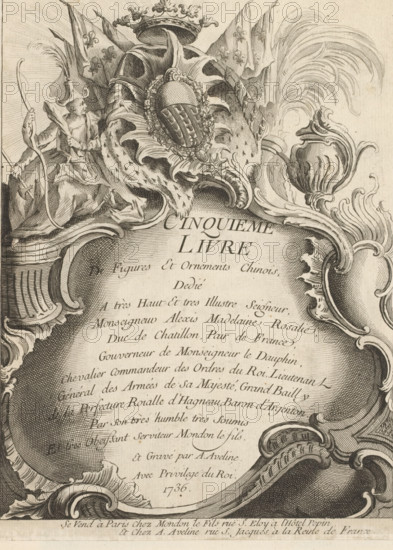 CINQUIEME
LIVRE
De Figures Et Ornements Chinois,
Dedié
A très Haut Et tres Illustre Seigneur,
Monseigneur Alexis Madelaine, Rosalie
Duc de Chatillon, Pair de France,
Gouverneur de Monseigneur le Dauphin,
Chevalier Commandeur des Ordres du Roi, Lieutenan
General des Armées de sa Majesté, Grand Bailly
de la Prefecture Roialle d'Hagneau, Baron d'Argenton
Par Son très humble très Soumis
Et très Obeissant Serviteur Mondon le fils.
Et Gravé par A. Aveline
Avec Privilege du Roi.
1736.
Se Vend à Paris Chez Mondon le Fils rue S. Eloy à l'Hôtel Pepin
Et Chez A. Aveline rue S. Jacques à la Reine de France